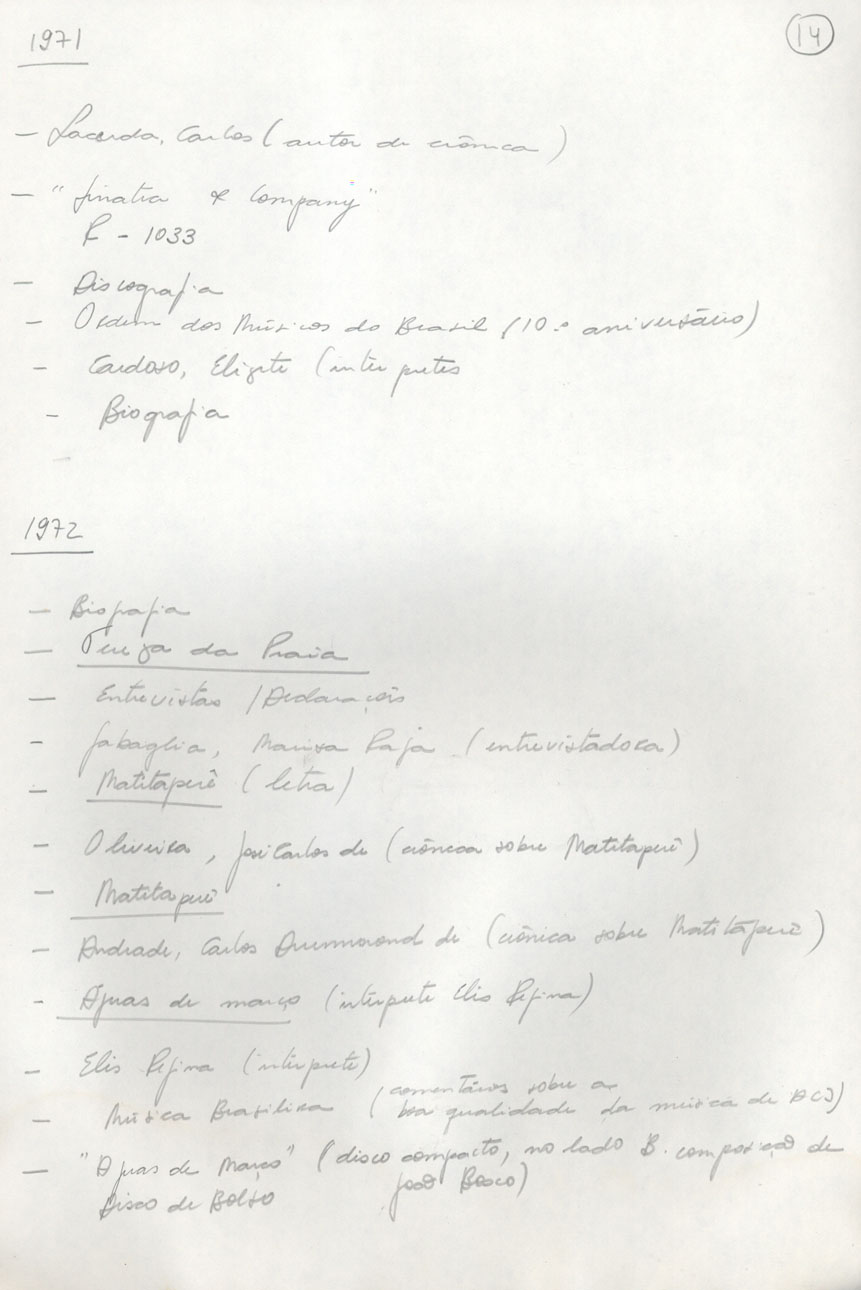 1971
14
- Lacerda, Carlos (autor de crônica)
- "Sinatra & Company"
R - 1033
- Discografia
- Ordem dos Músicos do Brasil (10.º aniversário)
- Cardoso, Elizete (intérpretes
- Biografia
1972
- Biografia
- Tereza da Praia
- Entrevistas / Declarações
- Sabaglia, Marisa Raja (entrevistadora)
- Matitaperê (letra)
- Oliveira, José Carlos de (crônica sobre Matitaperê)
- Matitaperê
- Andrade, Carlos Drummond de (crônica sobre Matitáperê)
- Águas de março (intérprete Elis Regina)
- Elis Regina (intérprete)
- Música Brasilira (comentários sobre a
boa qualidade da música de ACJ)
- "Águas de Março" (disco compacto, no lado B. composição de
Disco de Bolso João Bosco)